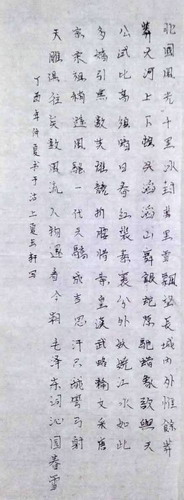 北國風光千里冰封萬里雪飄望長城內外惟餘莽
莽大河上下頓失滔滔山舞銀蛇原馳蠟象欲與天
公試比高須晴日看紅裝素裹分外妖嬈江山如此
多嬌引無數英雄競折腰惜秦皇漢武略輸文采唐
宗宋祖稍遜風騷一代天驕成吉思汗只識彎弓射
大雕俱往矣數風流人物還看今朝毛泽东詞沁园春雪
丁酉年仲夏书于沽上夏玉轩写